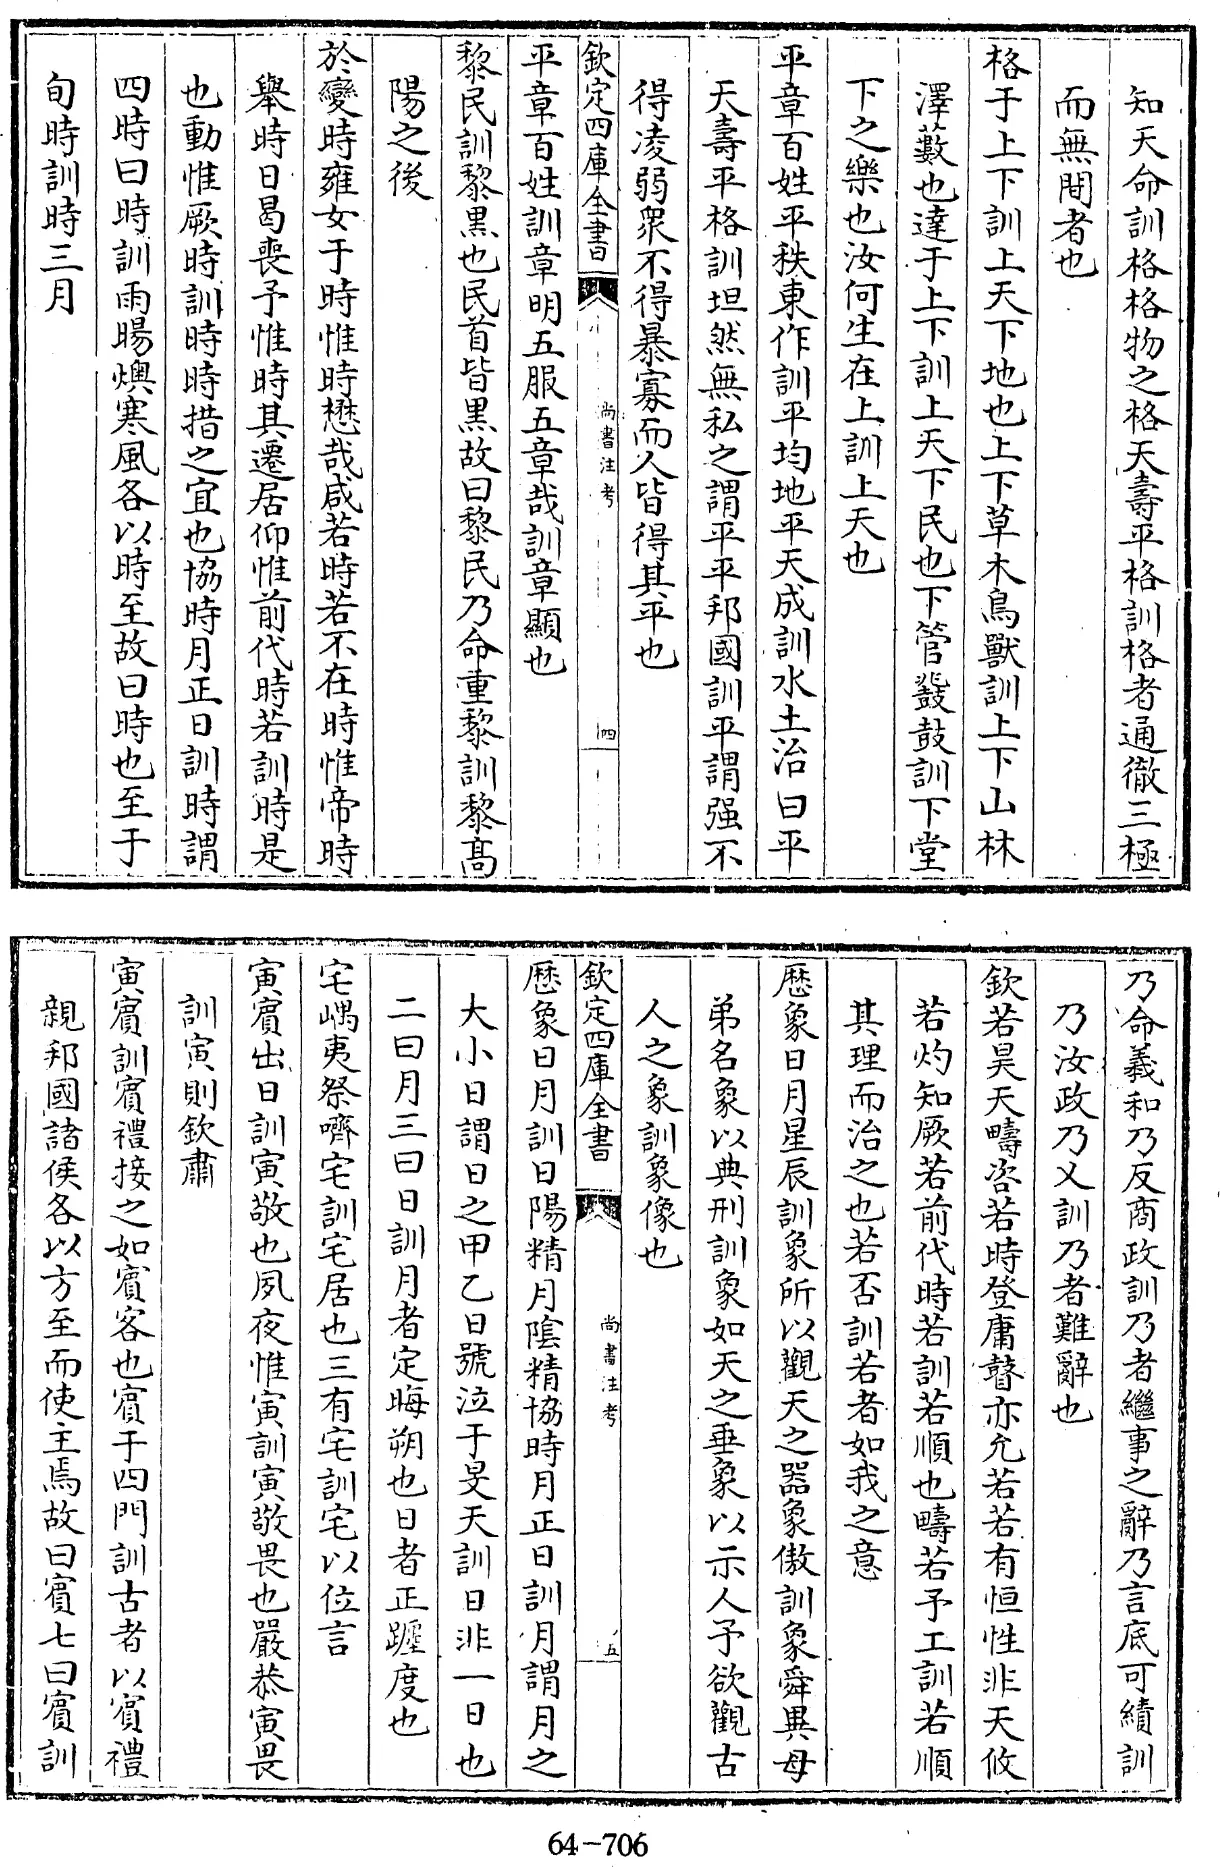 知天命訓格格物之格天壽平格訓格者通徹三極
而無間者也
格于上下訓上天下地也上下草木鳥獸訓上下山林
澤藪也達于上下訓上天下民也下管鼗鼓訓下堂
下之樂也汝何生在上訓上天也
平章百姓平秩東作訓平均地平天成訓水土治曰平
天壽平格訓坦然無私之謂平平邦國訓平謂强不
得凌弱衆不得暴寡而人皆得其平也
欽定四庫全書
尚書注考
四
平章百姓訓章明五服五章哉訓章顯也
黎民訓黎黒也民首皆黒故曰黎民乃命重黎訓黎髙
陽之後
於變時雍女于時惟時懋哉咸若時若不在時惟帝時
舉時日曷喪予惟時其遷居仰惟前代時若訓時是
也動惟厥時訓時時措之宜也協時月正日訓時謂
四時曰時訓雨暘燠寒風各以時至故曰時也至于
旬時訓時三月
乃命羲和乃反商政訓乃者繼事之辭乃言底可績訓
乃汝政乃乂訓乃者難辭也
欽若昊天疇咨若時登庸瞽亦允若若有恒性非天攸
若灼知厥若前代時若訓若順也疇若予工訓若順
其理而治之也若否訓若者如我之意
厯象日月星辰訓象所以觀天之器象傲訓象舜異母
弟名象以典刑訓象如天之垂象以示人予欲觀古
人之象訓象像也
欽定四庫全書
尚書注考
五
厯象日月訓日陽精月隂精協時月正日訓月謂月之
大小日謂日之甲乙日號泣于旻天訓日非一日也
二曰月三曰日訓月者定晦朔也日者正躔度也
宅嵎夷祭嚌宅訓宅居也三有宅訓宅以位言
寅賔出日訓寅敬也夙夜惟寅訓寅敬畏也嚴恭寅畏
訓寅則欽肅
寅賔訓賔禮接之如賔客也賔于四門訓古者以賔禮
親邦國諸侯各以方至而使主焉故曰賔七曰賔訓
64-706